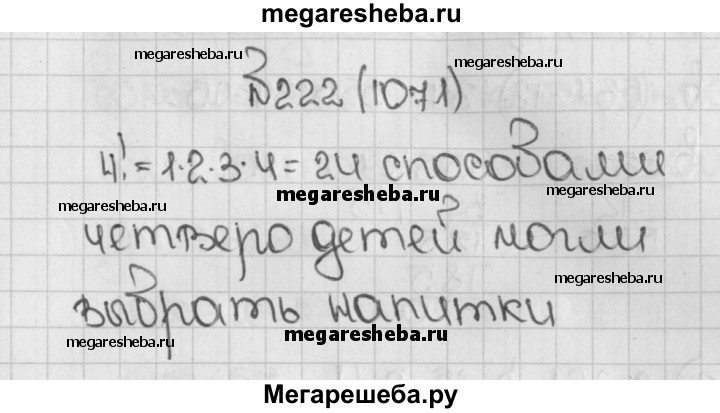 megaresheba.ru
megaresheba.ru
№222 (1071)
megaresheba.ru
4! = 1·2·3·4 = 24 способами
megaresheba.ru
megaresheba.ru
megaresheba.ru
четверо детей могли
megaresheba.ru
выбрать напитки
megaresheba.ru
megaresheba.ru
Мегарешеба.ру